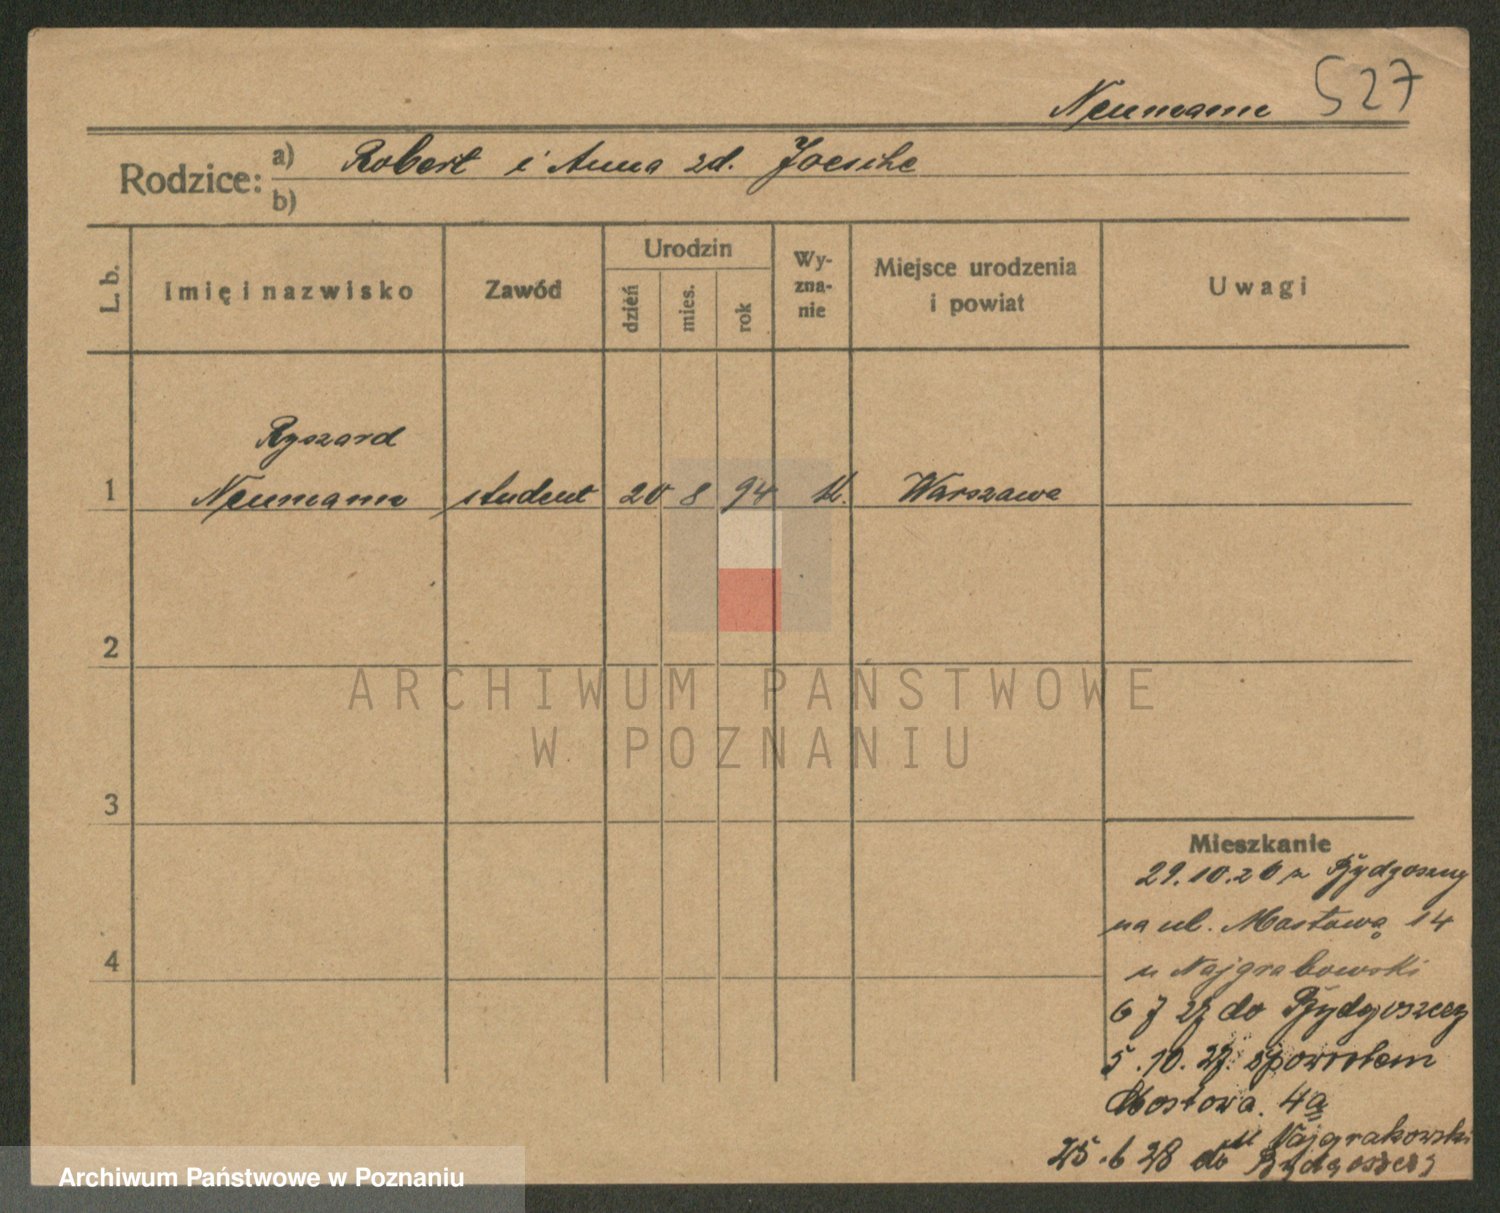 Neumann 527
Rodzice: a) Robert i Anna zd. Joesche
b)
L. b.
Imię i nazwisko
Zawód
Urodzin
dzień
mies.
rok
Wy-
zna-
nie
Miejsce urodzenia
i powiat
Uwagi
Ryszard
1 Neumann student 20 8 94 Warszawa
2
3
4
ARCHIWUM PAŃSTWOWE
W POZNANIU
Mieszkanie
29.10.26 z Bydgoszczy
na ul. Mostową 14
u Najgrakowski
6 7 27 do Bydgoszczy
5.10.27. spowrotem
Mostowa. 4a
u Najgrakowski
25.6 28 do Bydgoszczy
Archiwum Państwowe w Poznaniu